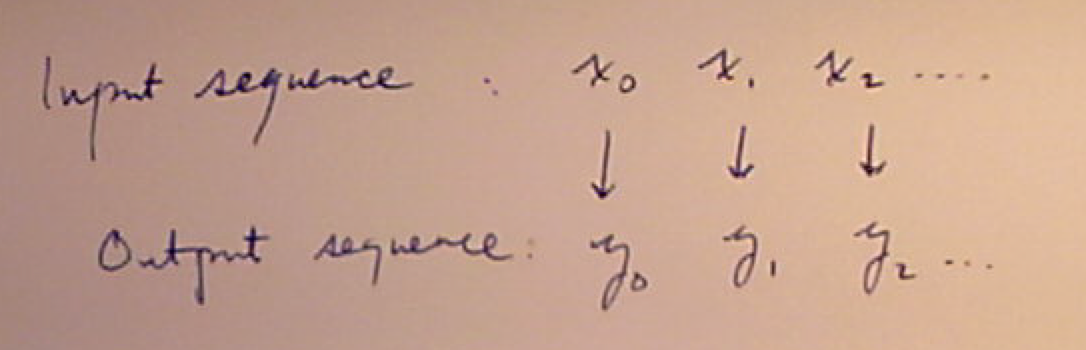 Input sequence : x₀ x₁ x₂ .....
↓ ↓ ↓
Output sequence: y₀ y₁ y₂ ...